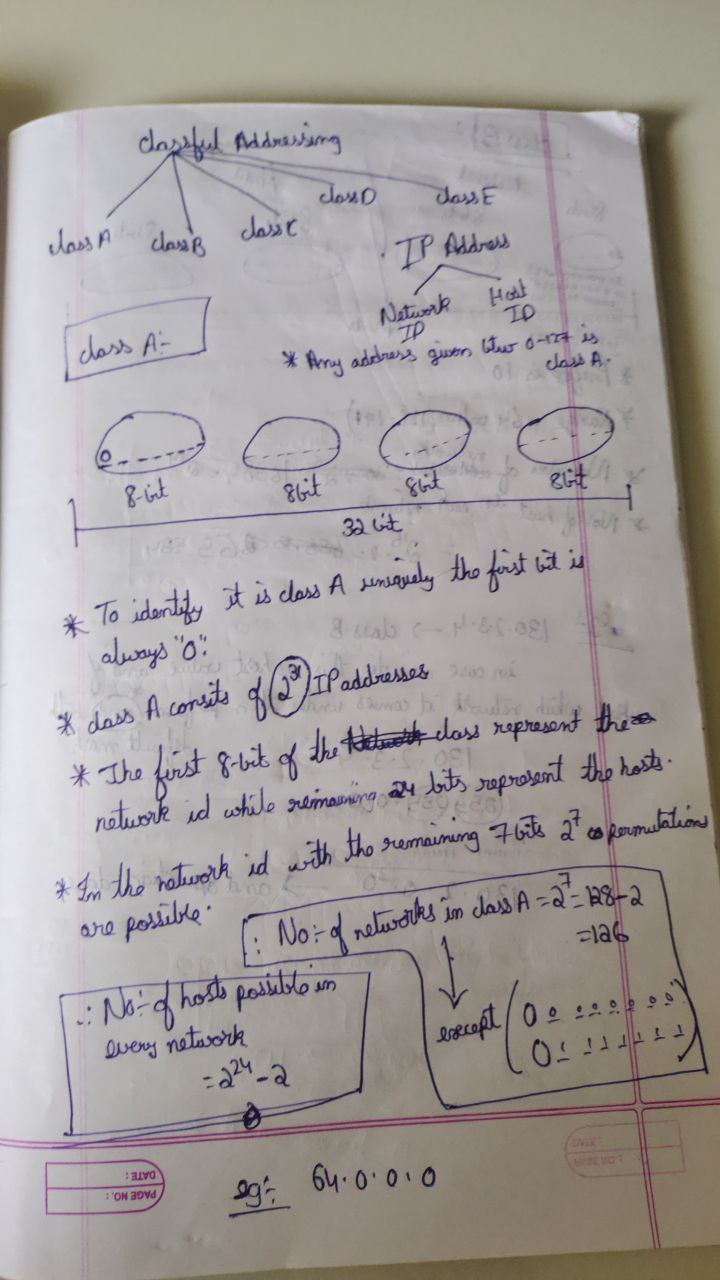 Classful Addressing
class A
class B
class C
class D
class E
IP Address
Network ID
Host ID
class A:-
* Any address given btw 0-127 is
class A.
0
8-bit
8bit
8bit
8bit
32 bit
* To identify it is class A uniquely the first bit is
always "0".
* class A consits of 2^31 IP addresses
* The first 8-bit of the class represent the
network id while remaining 24 bits represent the hosts.
* In the network id with the remaining 7 bits 2^7 permutations
are possible.
∴ No:- of networks in class A = 2^7 = 128-2
=126
except (0 0 0 0 0 0 0 0
0 1 1 1 1 1 1 1)
∴ No:- of hosts possible in
every network
= 2^24 - 2
PAGE NO.:
DATE:
eg:- 64.0.0.0